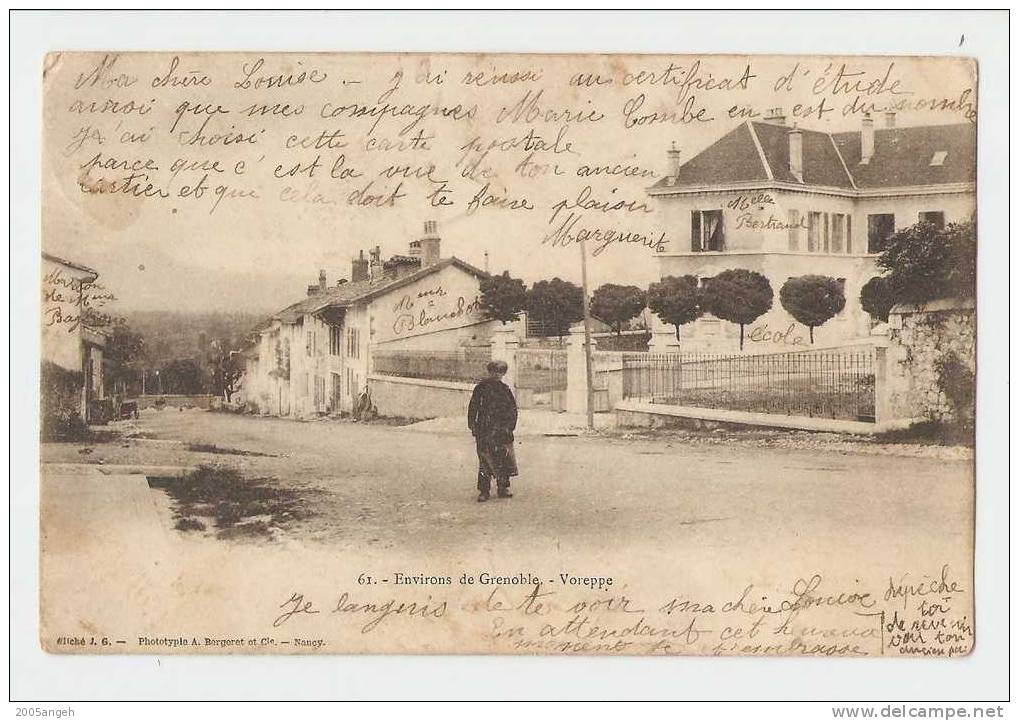 Ma chère Louise - j'ai réussi au certificat d'étude
ainsi que mes compagnes Marie Combe en est du nombre
J'ai choisi cette carte postale
parce que c'est la vue de ton ancien
cartier et que cela doit te faire plaisir
Marguerite
Melle
Bertrand
Maison
de Mr
Meur
Blanchet
école
61. - Environs de Grenoble. - Voreppe
Je languis de te voir ma chère Louise
En attendant cet heureux
moment je t'embrasse
dépèche
toi
de revenir
voir ton
ancien
Cliché J. G. — Phototypie A. Bergeret et Cie. — Nancy.
2005angeh
http://www.delcampe.net